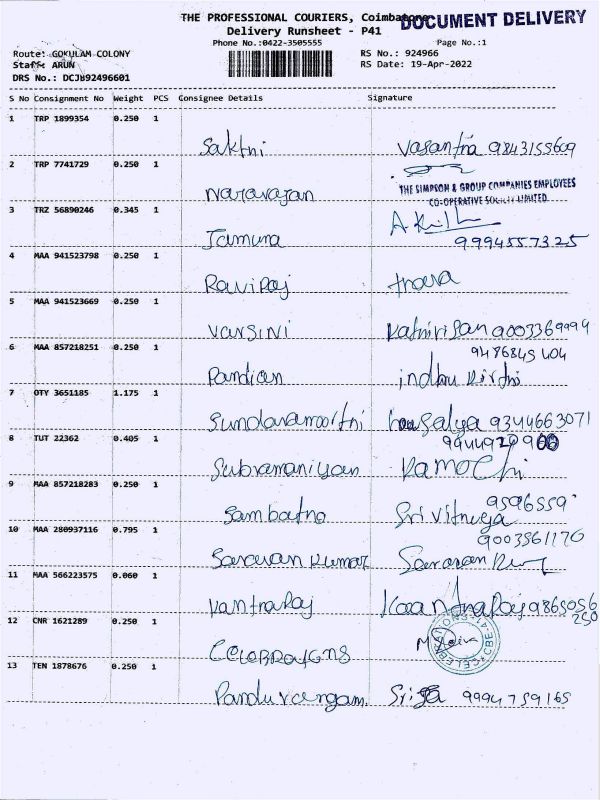 THE PROFESSIONAL COURIERS, Coimbatore
DOCUMENT DELIVERY
Delivery Runsheet - P41
Phone No.:0422-3505555 Page No.:1
Route: GOKULAM COLONY RS No.: 924966
Staff: ARUN RS Date: 19-Apr-2022
DRS No.: DCJW92496601
S No Consignment No Weight PCS Consignee Details Signature
1 TRP 1899354 0.250 1
Sakthi Vasantha 9843155609
2 TRP 7741729 0.250 1
Narayanan THE SIMPSON & GROUP COMPANIES EMPLOYEES
CO-OPERATIVE SOCIETY LIMITED
3 TRZ 56890246 0.345 1
Jamuna 9994557325
4 MAA 941523798 0.250 1
Raviraj
5 MAA 941523669 0.250 1
Varsini 9003369994
6 MAA 857218251 0.250 1 9486845404
Pandian indhu
7 OTY 3651185 1.175 1
Sundaramoorthi 9344663071
8 TUT 22362 0.405 1
Subramaniyan
9 MAA 857218283 0.250 1 9596559
Sri
10 MAA 280937116 0.795 1 9003561176
Saravan Kumar Saravan
11 MAA 566223575 0.060 1
Kanthraj 9865056
250
12 CNR 1621289 0.250 1
13 TEN 1878676 0.250 1
Pandurangam 9994759165